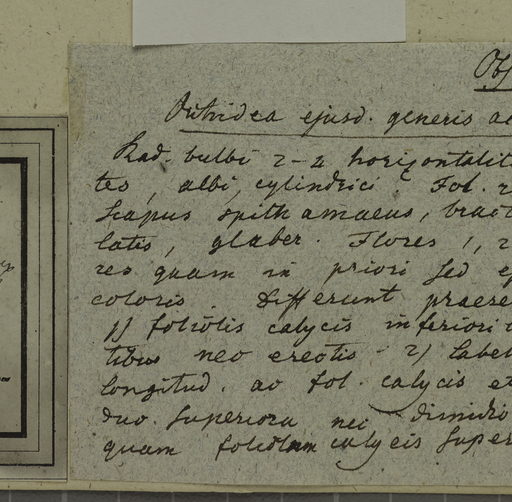 Obs
Orchidea ejusd. generis ac
Rad. bulbi 2-2 horizontalit
tes, albi, cylindrici. Fol. 2
Scapus spithamaeus, bract
latis, glaber. Flores 1, 2
res quam in priori sed ej
coloris. Differunt praere
1) foliolis calycis inferiori
tibus nec erectis. 2) Label
longitud. ac fol. calycis et
duo superiora nec dimidio
quam foliolum calycis super